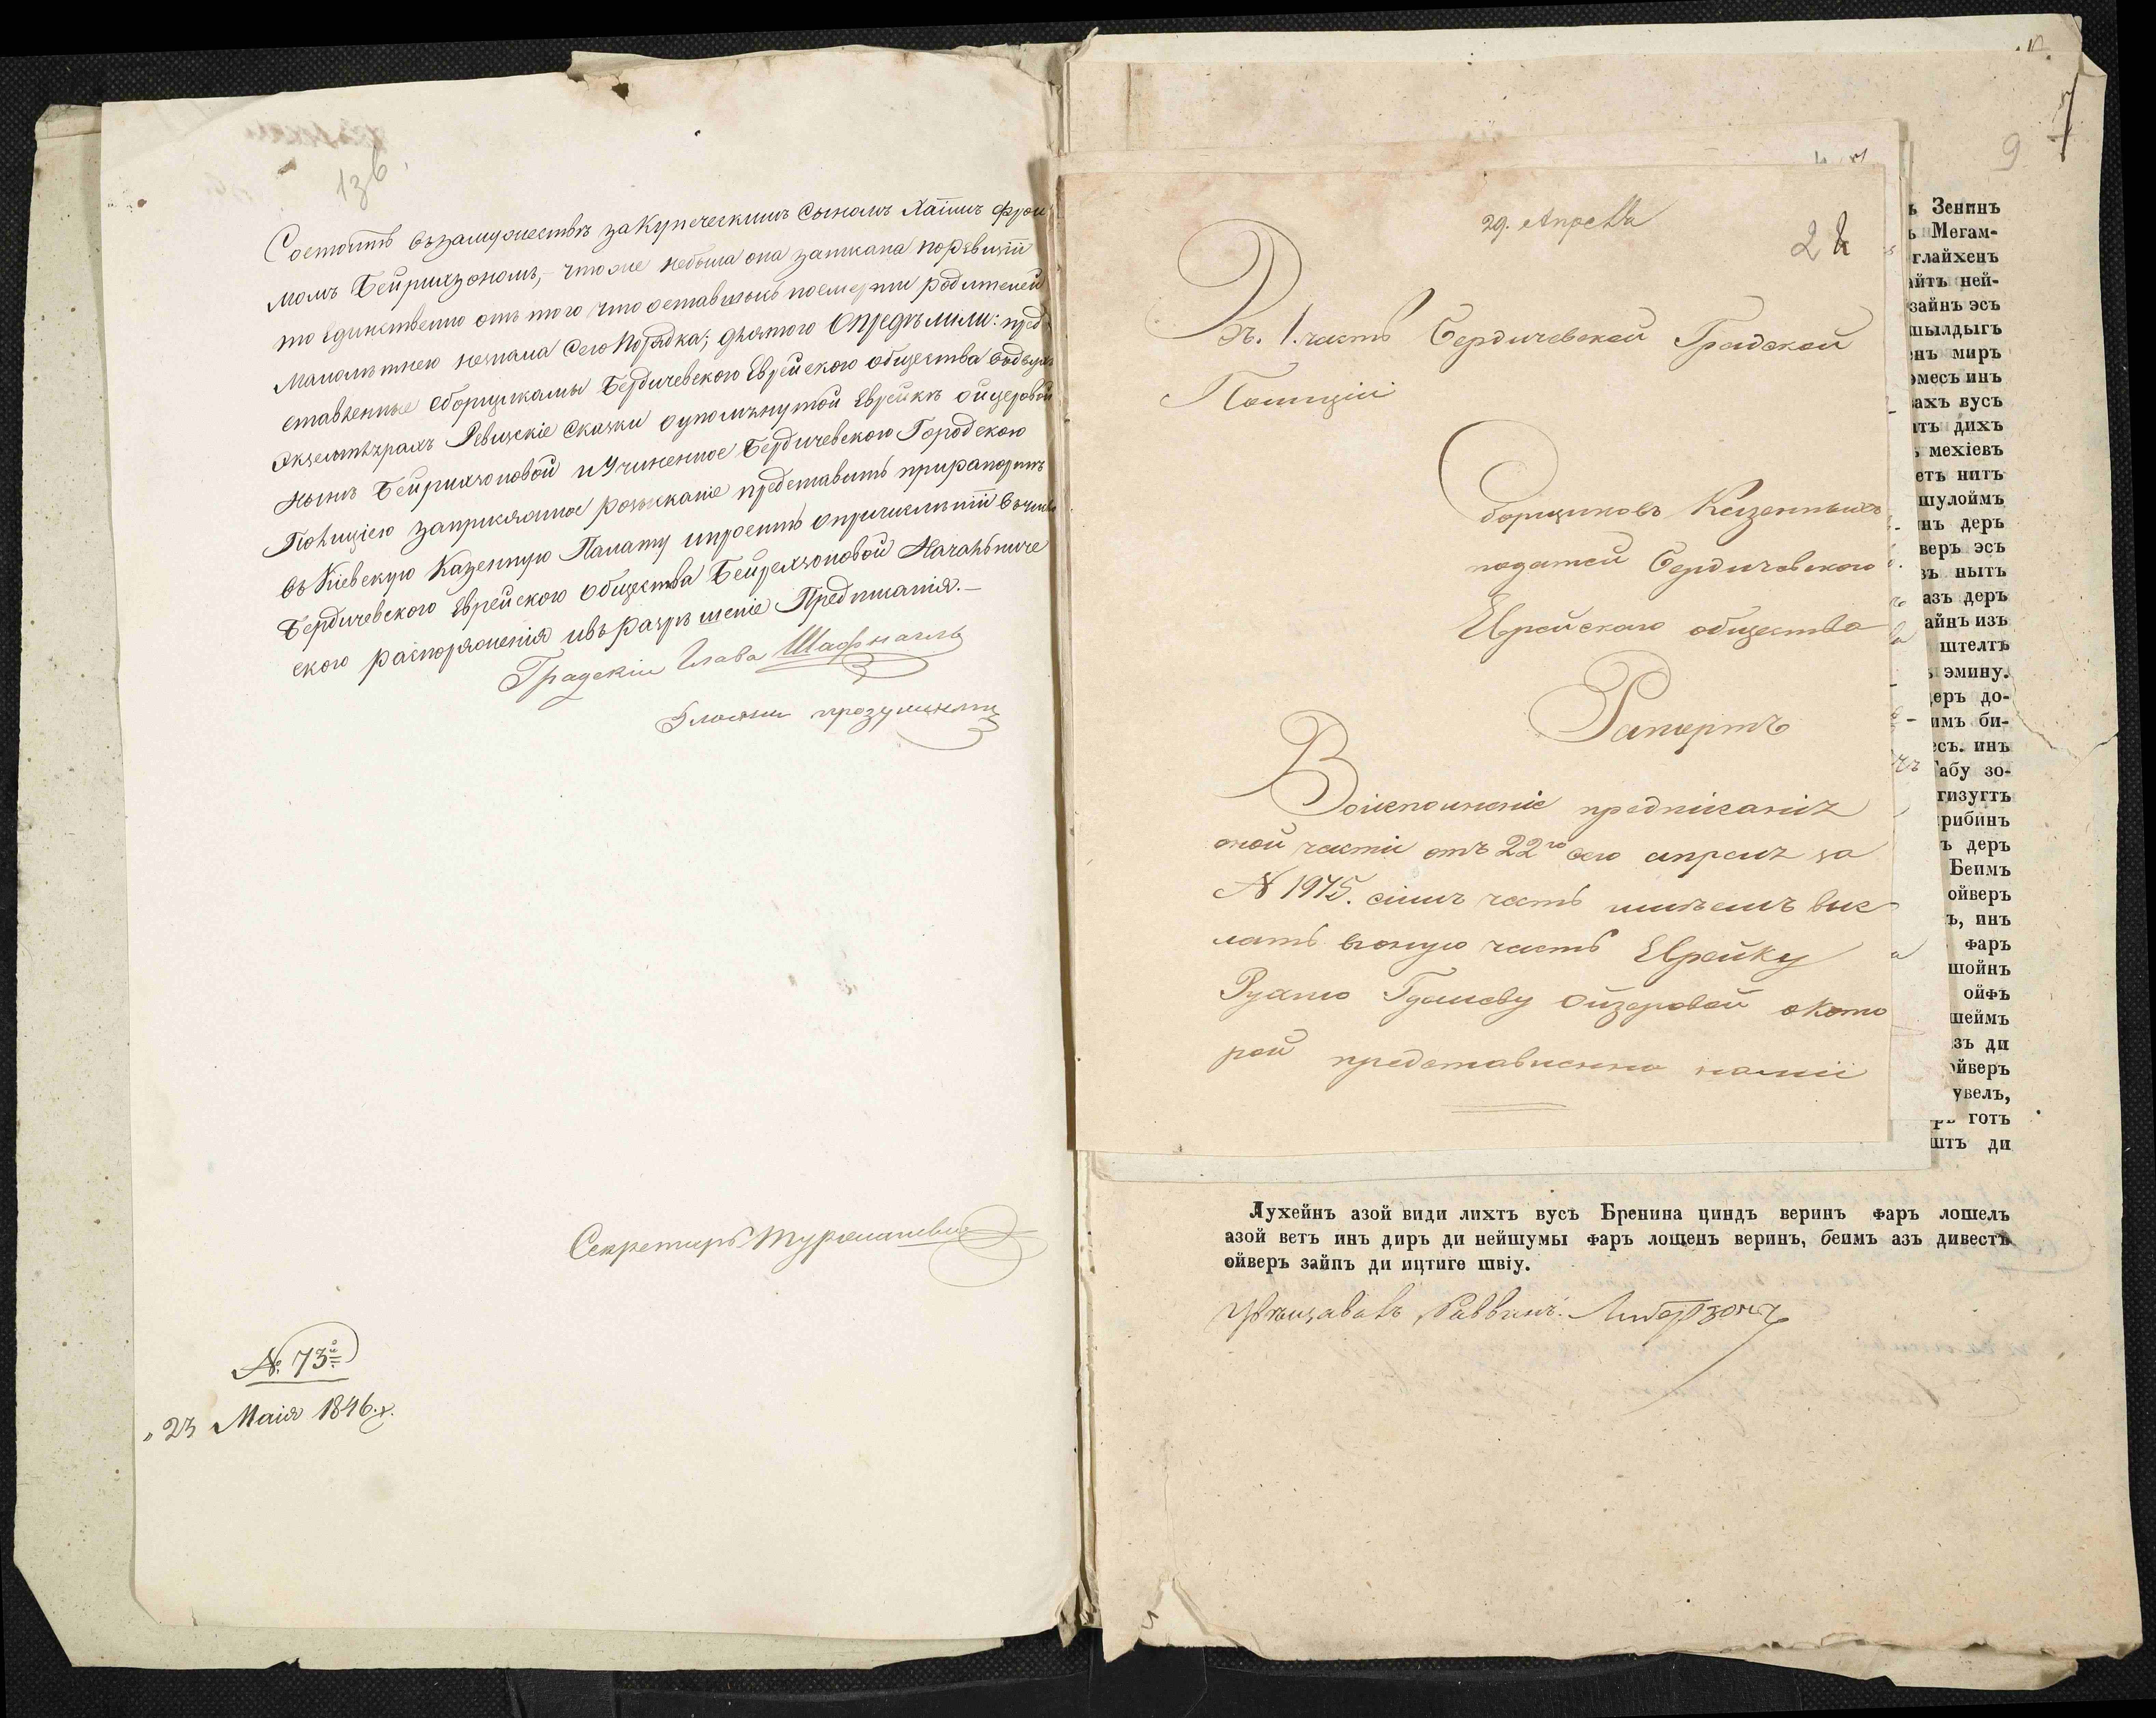 13 б
Состоитъ възамужествѣ закупеческимъ Сыномъ Хаiимъ Фрои
момъ Бейринзономъ, чтоже небыла она записана поревизiи
то единственно отъ того что оставшись посмерти родителей
малолѣтнею незнала сего порядка; длятого Опредѣлили: пред
ставленные сборщикамы Бердичевского Еврейского общества въдвухъ
экземплѣрахъ Ревизскiе Сказки оупомѣнутой Еврейкѣ Ойзеровой
нынѣ Бейринзоновой и Учиненное Бердичевскою Городскою
Полицiею заприсяжное розысканiе представить прирапортѣ
въ Кiевскую Казенную Палату ипросить опричисленiи въчисло
Бердичевского Еврейского общества Бейрензоновой Начальниче
ского распоряженiя ивъразрѣшенiе Предписанiя.
Градскiй Глава
Секретарь
№ 73й
23 Маiя 1846. г.
9
7
29. Апреля
2
Въ. 1. часть Бердичевской Градской
Полицiи
Сборщиковъ Казенныхъ
податей Бердичевского
Еврейского общества
Рапортъ
Воисполненiе предписанiя
оной части отъ 22го сего апреля за
№ 1975. симъ честь имѣемъ выс
лать воную часть Еврейку
Рухлю Ойзеровой окото
рой представленно нами
Зенинъ
Мегам-
глайхенъ
айтъ ней-
зайнъ эсъ
шылдыгъ
енъ миръ
эмесъ инъ
захъ вусъ
атъ дихъ
мехiевъ
етъ нитъ
шулоймъ
инъ деръ
веръ эсъ
зъ нытъ
азъ деръ
айнъ изъ
штелтъ
эмину.
деръ до-
имъ би-
есъ. инъ
Габу зо-
гизугтъ
рибинъ
ъ деръ
Беимъ
ойверъ
ъ, инъ
фаръ
шойнъ
ойфъ
шеймъ
зъ ди
ойверъ
увелъ,
ръ готъ
штъ ди
Лухейнъ азой види лихтъ вусъ Бренина циндъ веринъ фаръ лошелъ
азой ветъ инъ диръ ди нейшумы фаръ лощенъ веринъ, беимъ азъ дивестъ
ойверъ зайнъ ди ицтиге швiу.
Увѣщавалъ Раввинъ. Либерзонъ